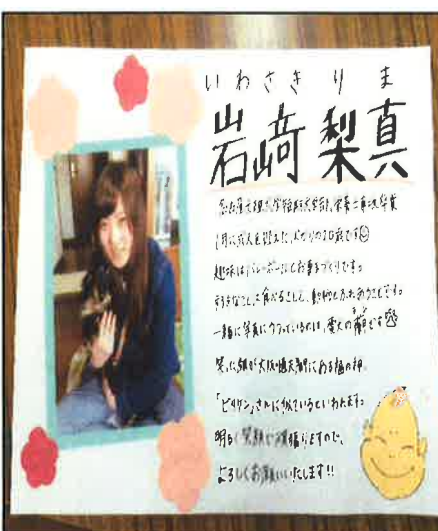 いわさき りま
岩﨑 梨真
名古屋文理大学短期大学部、栄養士専攻卒業
1月に成人を迎えたばかりの20歳です
趣味はバレーボールとお菓子づくりです。
すきなことは食べること、動物とふれあうことです。
一緒に写真にうつっているのは、愛犬の です
笑った顔が大阪・通天閣にある福の神、
「ビリケン」さんに似ているといわれます。
明るく笑顔で頑張りますので、
よろしくお願いいたします!!